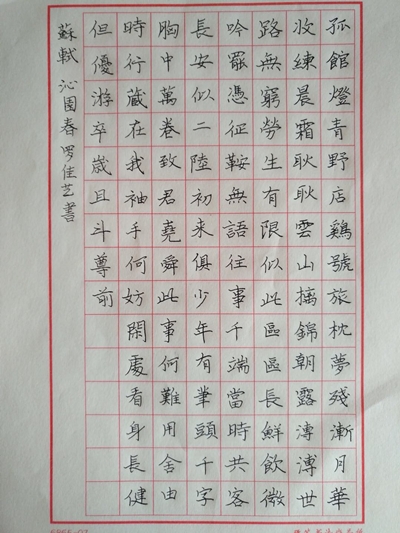 孤館燈青野店鷄號旅枕夢殘漸月華
收練晨霜耿耿雲山摛錦朝露漙漙世
路無窮勞生有限似此區區長鮮飲微
吟罷憑征鞍無語往事千端當時共客
長安似二陸初來俱少年有筆頭千字
胸中萬卷致君堯舜此事何難用舍由
時行藏在我袖手何妨閑處看身長健
但優游卒歲且斗尊前
蘇軾 沁園春 罗佳艺書